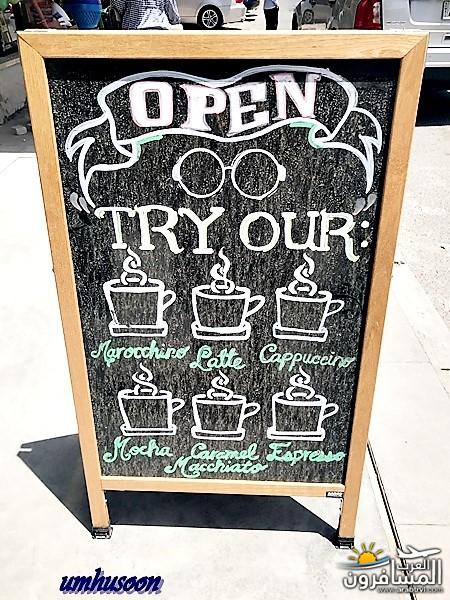 OPEN
TRY OUR:
Marocchino Latte Cappuccino
Mocha Caramel Macchiato Espresso
umhusoon
العرب
المسافرون
www.arabtrvl.com